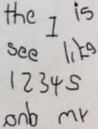 the I is
see like
12345
onb mr